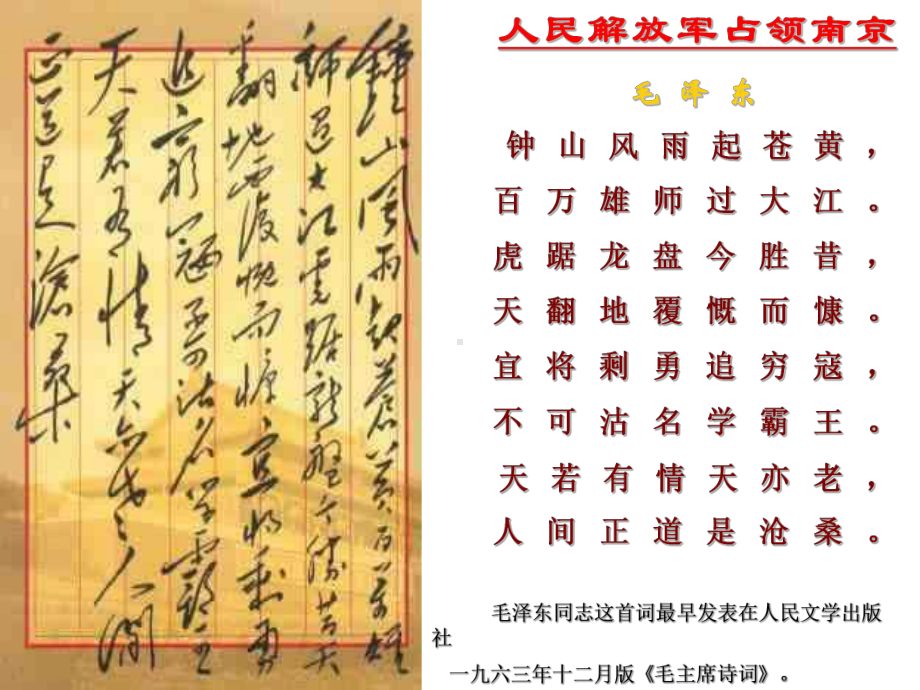 鍾山風雨起蒼黃百萬雄
師過大江虎踞龍盤今勝昔天
翻地覆慨而慷宜將剩勇
追窮寇不可沽名學霸王
天若有情天亦老人間
正道是滄桑
人民解放军占领南京
毛泽东
钟山风雨起苍黄，
百万雄师过大江。
虎踞龙盘今胜昔，
天翻地覆慨而慷。
宜将剩勇追穷寇，
不可沽名学霸王。
天若有情天亦老，
人间正道是沧桑。
毛泽东同志这首词最早发表在人民文学出版
社
一九六三年十二月版《毛主席诗词》。